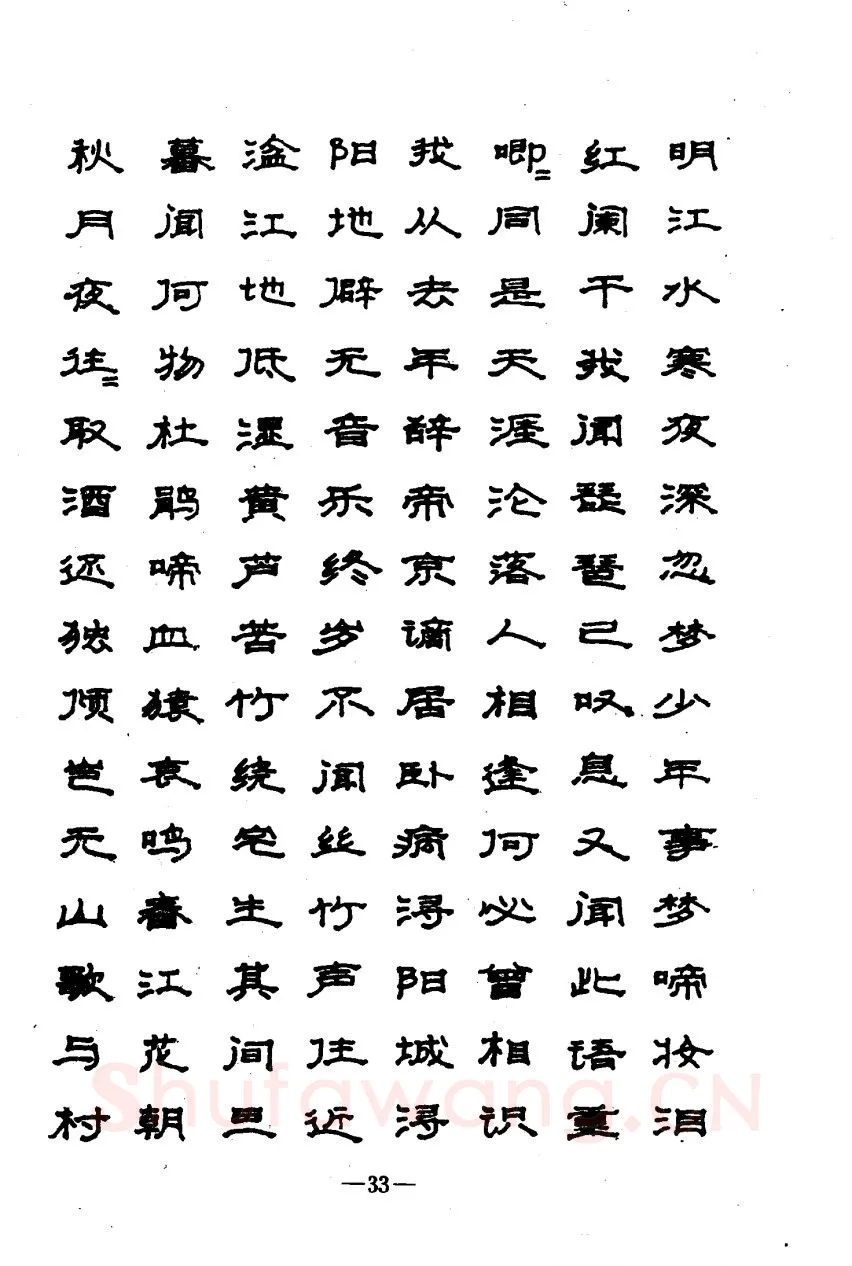 明江水寒夜深忽梦少年事梦啼妆泪
红阑干我闻琵琶已叹息又闻此语重
唧〻同是天涯沦落人相逢何必曾相识
我从去年辞帝京谪居卧病浔阳城浔
阳地僻无音乐终岁不闻丝竹声住近
湓江地低湿黄芦苦竹绕宅生其间旦
暮闻何物杜鹃啼血猿哀鸣春江花朝
秋月夜往〻取酒还独倾岂无山歌与村
—33—
Shufawang.CN